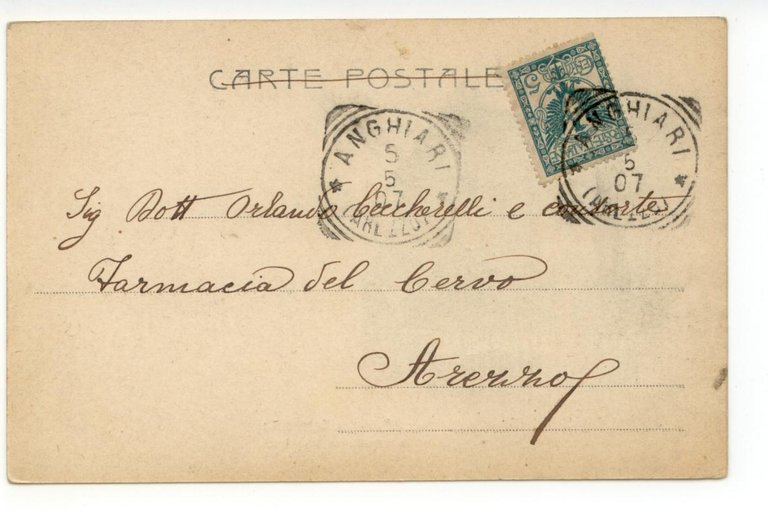 CARTE POSTALE
5
ANGHIARI
5
5
07
(AREZZO)
ANGHIARI
5
07
(AREZZO)
Sig Dott Orlando Ceccherelli e consorte
Farmacia del Cervo
Arezzo